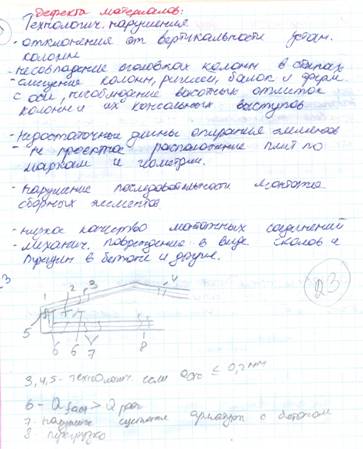 Дефекты материалов:
Технологич. нарушения
- отклонения от вертикальности устан. колонн
- несовпадение оголовков колонн в стыках
- смещение колонн, ригелей, балок и ферм
с оси, несоблюдение высотных отметок
колонн и их консольных выступов
- недостаточные длины опирания элементов
- не проектное расположение плит по
маркам и геометрии.
- нарушение последовательности монтажа
сборных элементов
- низкое качество монтажных соединений
- механич. повреждение в виде сколов и
трещин в бетоне и другие.
23
1 2 3 4
5
6 6 7 8
3,4,5 - технологич. если αcrc ≤ 0,2мм
6 - Qfact > Q
7 - нарушение сцепления арматуры с бетоном
8 перегрузка